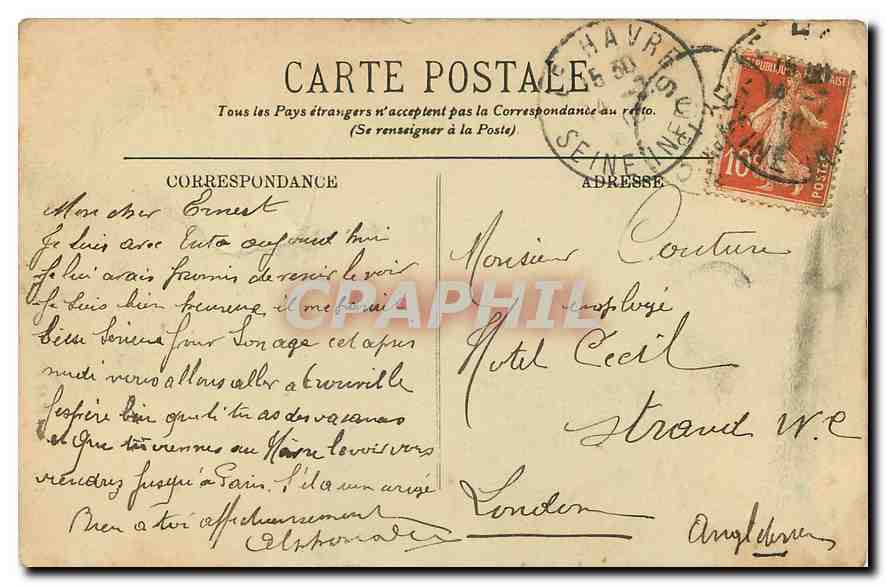 CARTE POSTALE
Tous les Pays étrangers n'acceptent pas la Correspondance au recto.
(Se renseigner à la Poste)
LE HAVRE
SEINE INFRE
10
POSTES
CORRESPONDANCE
ADRESSE
Mon cher Ernest
Je suis avec aujourd'hui
Je lui avais promis de venir le voir
Je suis bien heureux, il me parait
bien sérieux pour son age cet apres
midi nous allons aller a trouville
J'espère bien que si tu as des vacances
et que tu viennes au Havre le voir vous
viendrez jusqu'à Paris. S'il a un congé
Bien a toi affectueusement
Monsieur Couture
employé
Hotel Cecil
Strand W.C
London
Angleterre
CPAPHIL